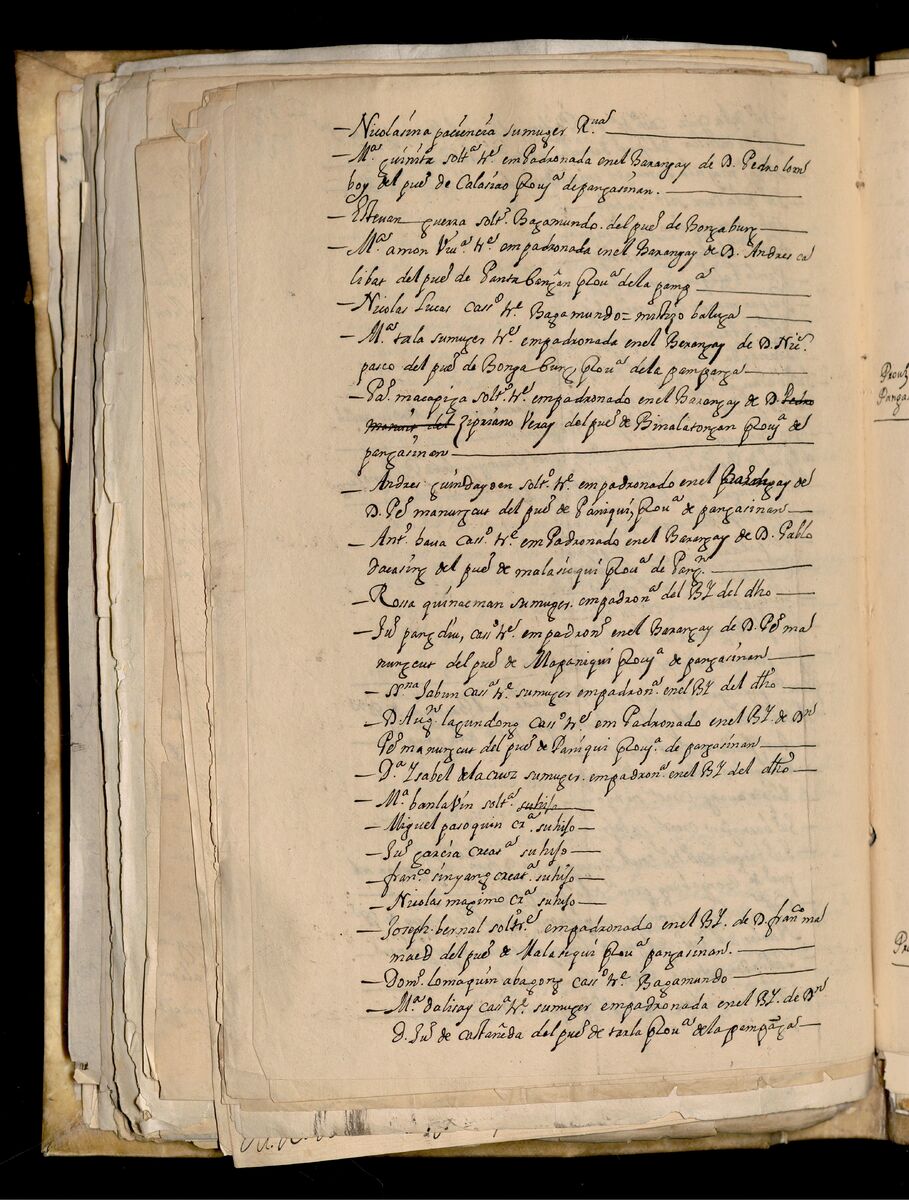 — Nicolasina paciencia su muger Rua
— Ma guinita solta tte empadronada en el Barangay de D. Pedro lom
boy del pueo de Calasiao Prova de pangasinan.
— Estevan guerra solto. Bagamundo. del pueo de Bongabung
— Ma amon viua. tte empadronada en el Barangay de D. Andres ca
libat del pueo de Pantabangan Prova de la pampa
— Nicolas Lucas casso tte Bagamundo = mistizo baluga
— Ma tala su muger tte empadronada en el Barangay de D. Nico.
pasco del pueo de Bongabung Prova de la pampanga
— Pao. macapiga solto. tte. empadronado en el Barangay de D. Pedro
del Zipriano Veray del pueo de Binalatongan Prova de
pangasinan
— Andres guindayoen solto. tte. empadronado en el Barangay de
D. Peo manungcut del pueo de Paniqui, Prova de pangasinan
— Anto. baua casso. tte. empadronado en el Barangay de D. Pablo
dacasing del pueo de malasiqui Prova de Pangn.
— Rossa quinaeman su muger. empadrona del By del dho
— Juo pangdiu, casso tte. empadrono en el Barangay de D. Peo ma
nungcut del pueo de Mapaniqui Prova de pangasinan
— Jabun cassa tte su muger empadrona. en el By del dho
— D. Augn. lagundong casso tte empadronado en el By. de Dn
Peo manungcut del pueo de Paniqui Prova. de pangasinan
— Da Ysabel de la cruz su muger. empadrona. en el By del dho
— Ma banlavin solta. su hija
— Miguel pasoquin cra. su hijo
— Juo garcia creata su hijo
— franco sinyang creata. su hijo
— Nicolas maximo cra su hijo
— Joseph bernal solto tte empadronado en el By. de D. franco ma
maed del pueo de Malasiqui Prova pangasinan.
— Domo. lomaquin abagong casso tte Bagamundo
— Ma dalisay cassa tte. su muger empadronada en el By. de Dn
D. Juo de castañeda del pueo de tarla Prova de la pampanga